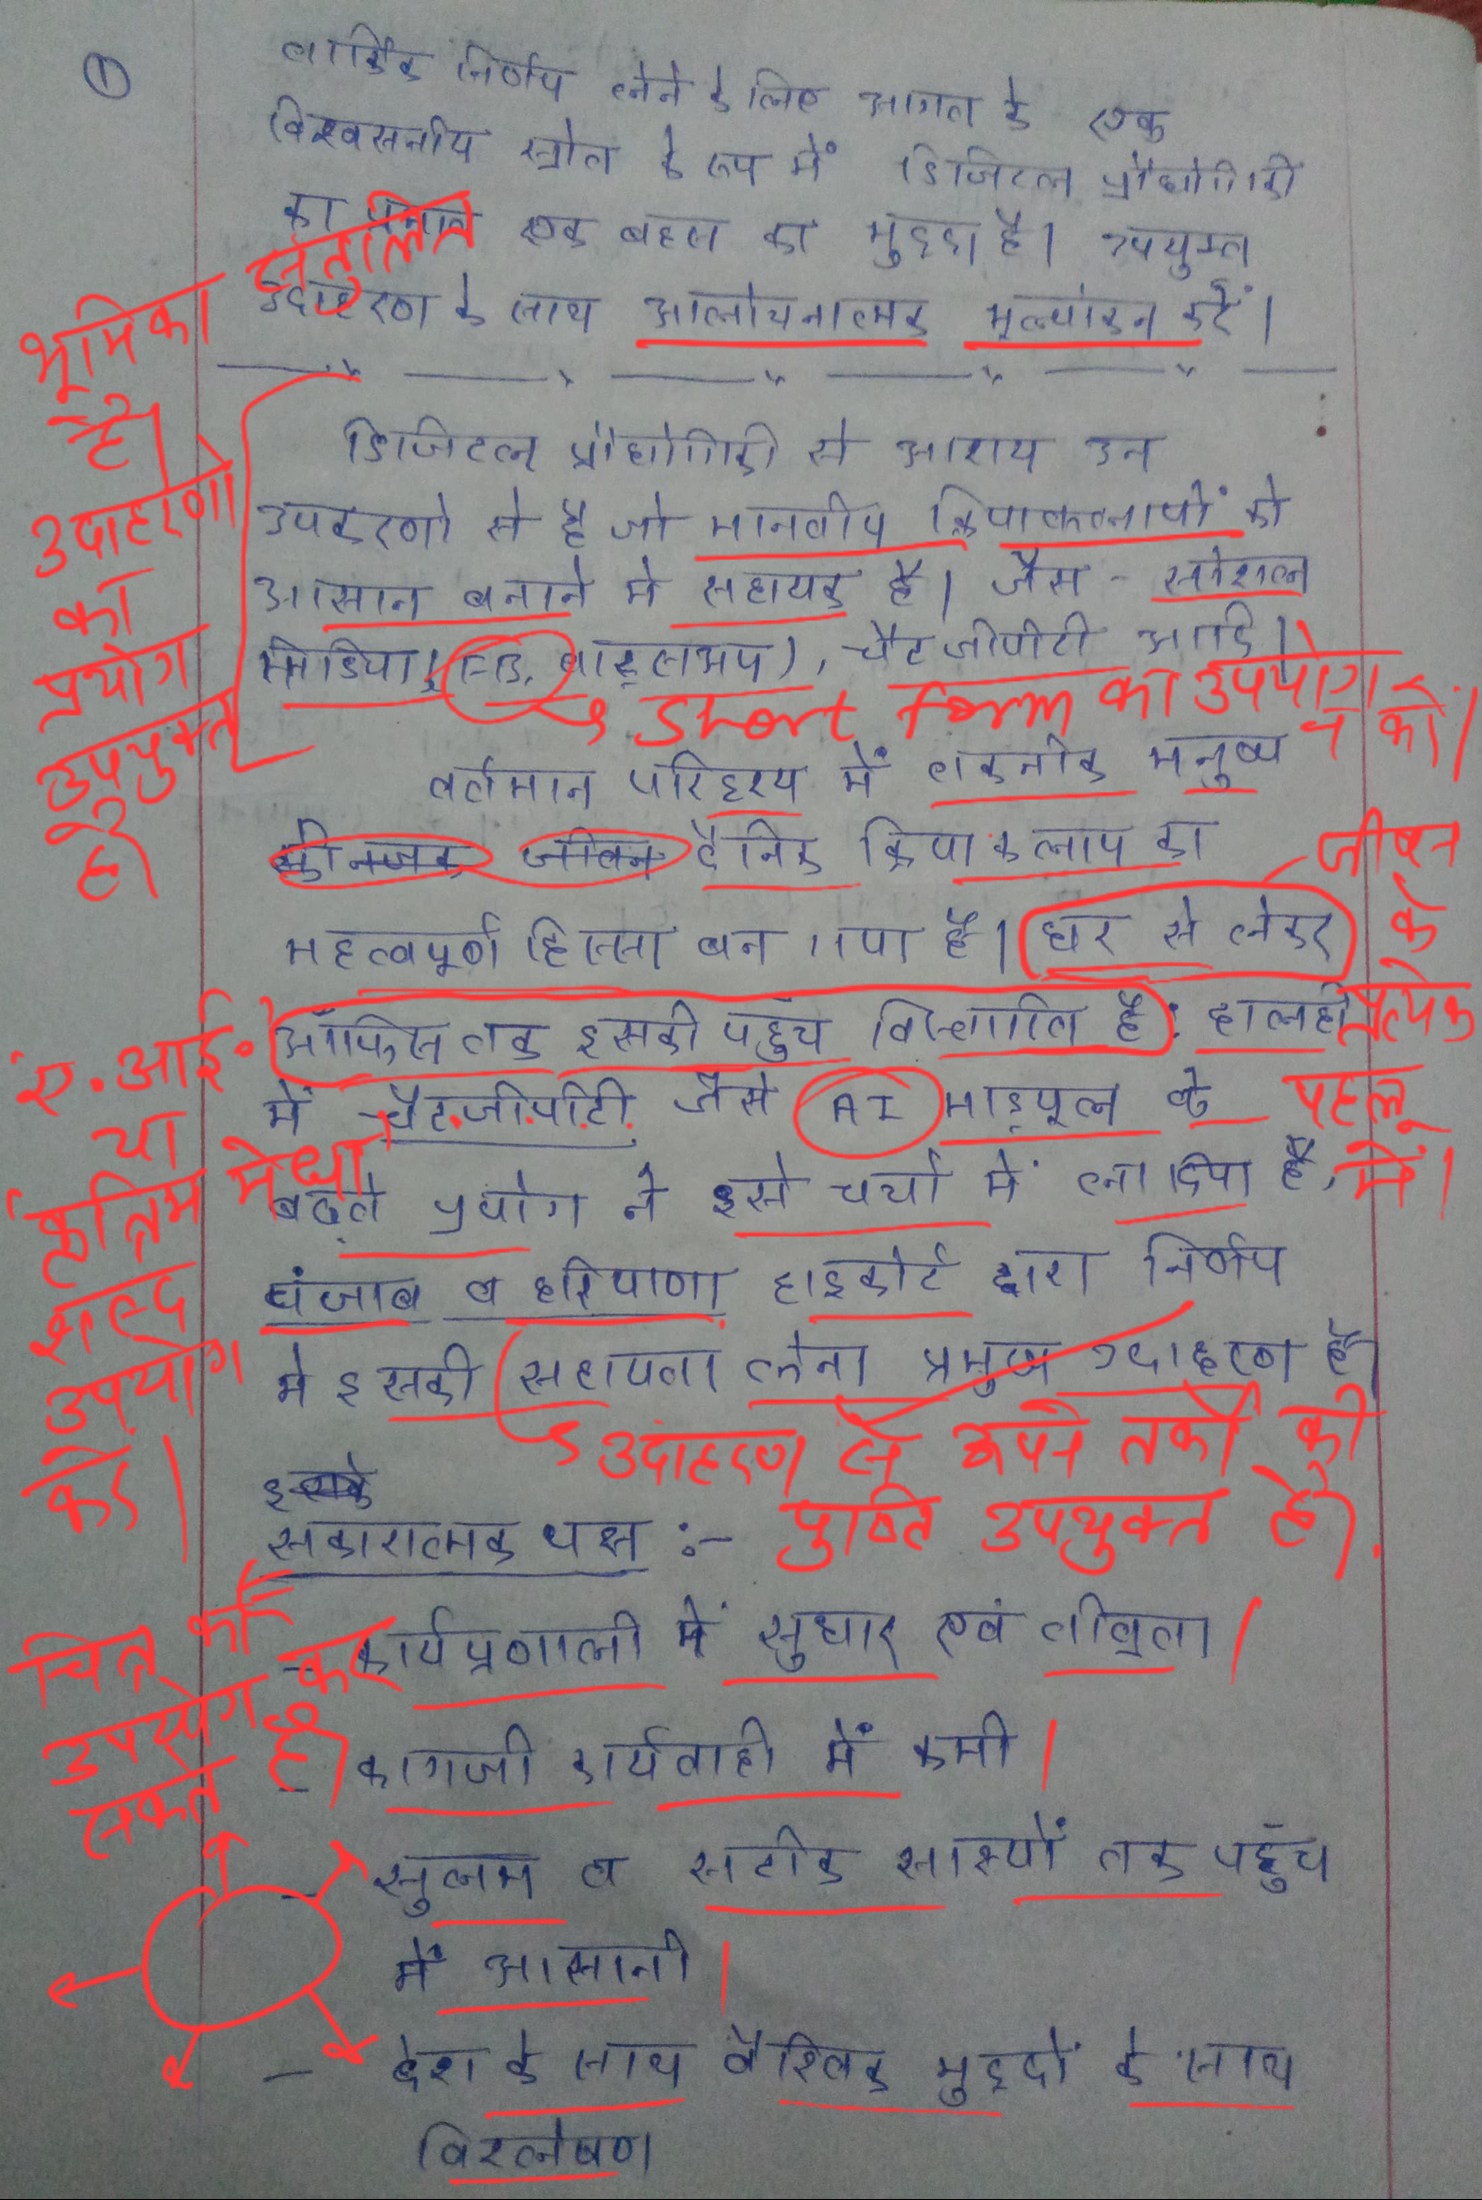 ①
तार्किक निर्णय लेने के लिए आगत के एक
विश्वसनीय स्रोत के रूप में डिजिटल प्रौद्योगिकी
का प्रभाव एक बहस का मुद्दा है। उपयुक्त
उदाहरण के साथ आलोचनात्मक मूल्यांकन करें।
भूमिका संतुलित
है।
उदाहरणों
का
प्रयोग
उपयुक्त
है।
डिजिटल प्रौद्योगिकी से आशय उन
उपकरणो से है जो मानवीय क्रियाकलापों को
आसान बनाने मे सहायक है। जैसे - सोशल
मिडिया (फे.बु., वाट्सअप), चैट जीपीटी आदि।
Short form का उपयोग
न करें।
वर्तमान परिदृश्य में तकनीक मनुष्य
की जीवन दैनिक क्रियाकलाप का
महत्वपूर्ण हिस्सा बन गया है। घर से लेकर
ऑफिस तक इसकी पहुँच विस्तारित है: हालही
में चैट.जी.पी.टी. जैसे AI माड्यूल के
बढ़ते प्रयोग ने इसे चर्चा में ला दिया है,
पंजाब व हरियाणा हाइकोर्ट द्वारा निर्णय
मे इसकी सहायता लेना प्रमुख उदाहरण है।
जीवन
के
प्रत्येक
पहलू
में।
ए.आई.
या
'कृत्रिम मेधा'
शब्द
उपयोग
करें।
उदाहरण से अपने तर्को की
पुष्टि उपयुक्त है।
इसके
सकारात्मक पक्ष :-
- कार्यप्रणाली में सुधार एवं तीव्रता।
चित्र का
उपयोग कर
सकते हैं।
कागजी कार्यवाही में कमी।
- सुलभ व सटीक साक्ष्यों तक पहुँच
में आसानी।
- देश के साथ वैश्विक मुद्दों के साथ
विश्लेषण